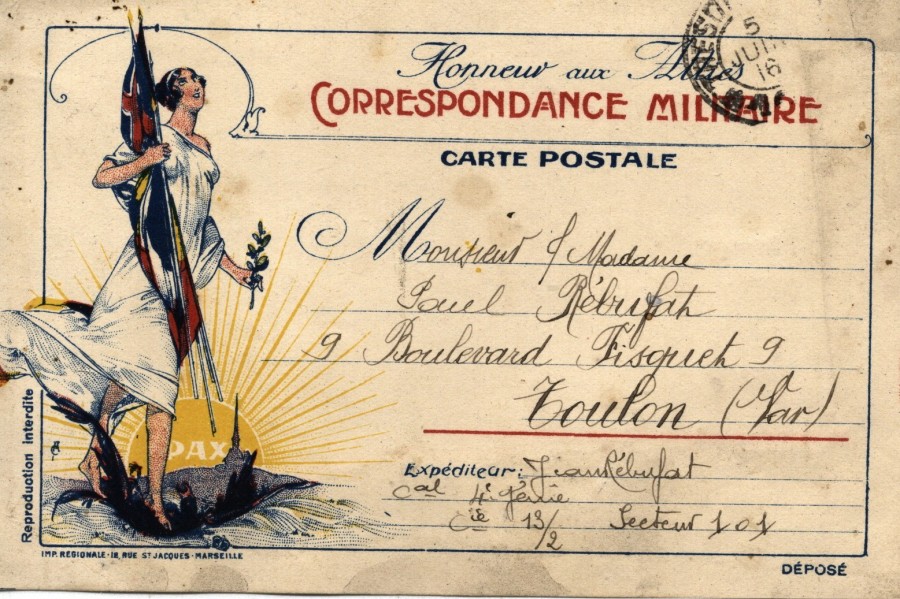 Honneur aux Alliés
CORRESPONDANCE MILITAIRE
5
JUIN
16
CARTE POSTALE
Monsieur & Madame
Paul Rébufat
9 Boulevard Fisquet 9
Toulon (Var)
PAX
Expéditeur: Jean Rébufat
Cal 4e Génie
Cie 13/2 Secteur 101
Reproduction interdite
IMP. REGIONALE-18, RUE ST JACQUES-MARSEILLE
DÉPOSÉ